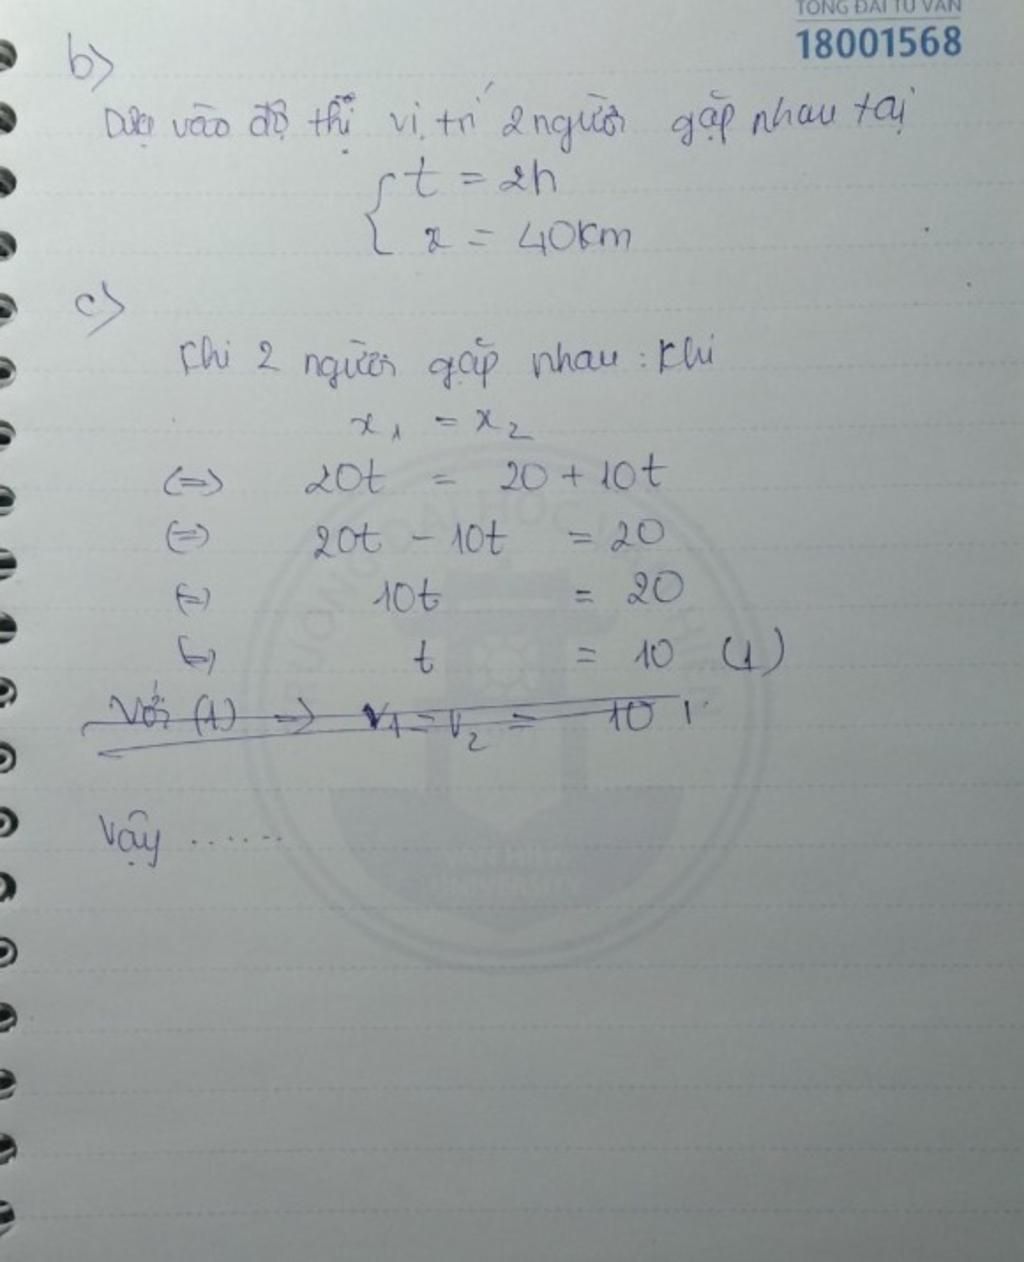 TỔNG ĐÀI TƯ VẤN
18001568
b>
Dựa vào đồ thị vị trí 2 người gặp nhau tại
t = 2h
x = 40km
c>
Khi 2 người gặp nhau : Khi
x₁ = x₂
(=) 20t = 20 + 10t
(=) 20t - 10t = 20
(=) 10t = 20
(=) t = 10 (1)
Với (1) => v₁ = v₂ = 10
Vậy ......
VAN HIEN
UNIVERSITY